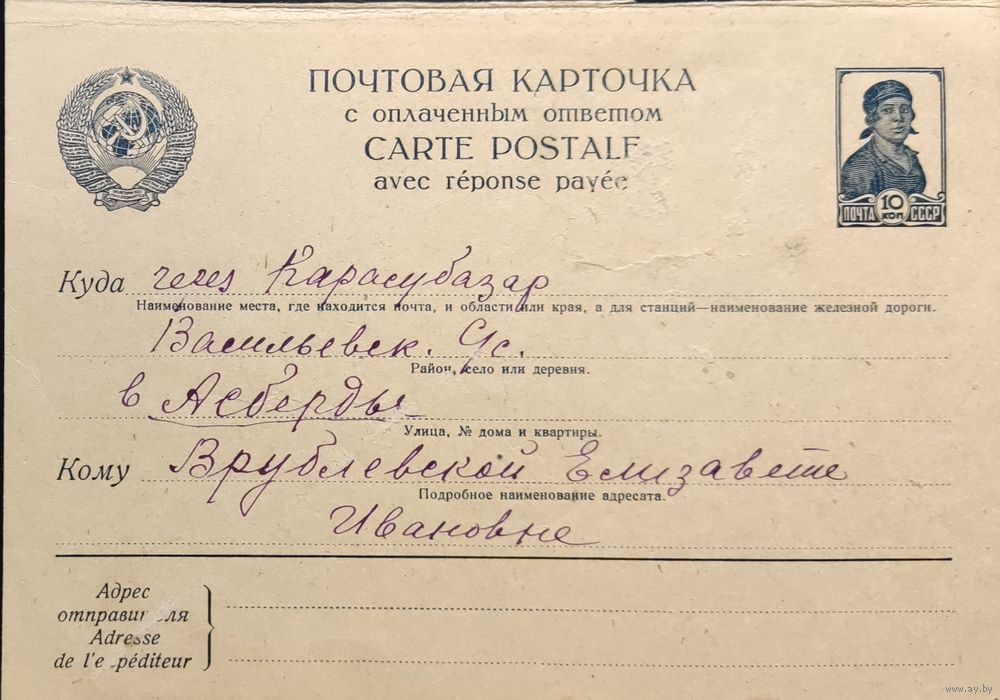 ПОЧТОВАЯ КАРТОЧКА
с оплаченным ответом
CARTE POSTALE
avec réponse payée
10
КОП
ПОЧТА СССР
Куда через Карасубазар
Наименование места, где находится почта, и области или края, а для станций—наименование железной дороги.
Васильевск. Ус.
Район, село или деревня.
в Асберды
Улица, № дома и квартиры.
Кому Врублевской Елизавете
Подробное наименование адресата.
Ивановне
Адрес
отправителя
Adresse
de l'expéditeur
www.ay.by